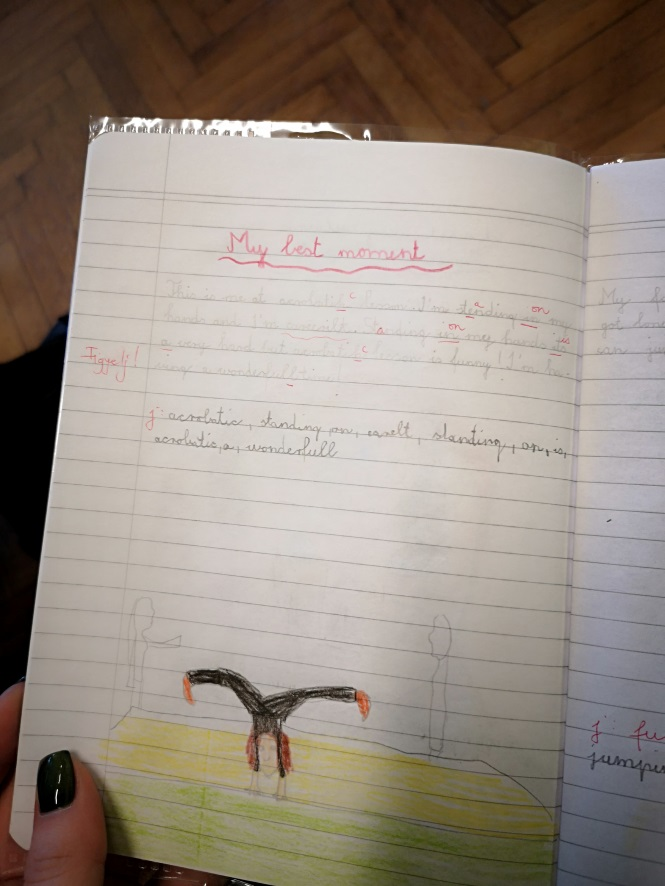 My best moment
This is me at acrobatik c lesson. I'm stending a in on my
hands and I'm Standing in on my hands is
a very hard but acrobatik c lesson is funny! I'm ha-
Figyelj!
ving a wonderfull time!
j: acrobatic, standing, on, exselt, standing, on, is,
acrobatic, a, wonderfull
My
got
can
j fu
jumpi